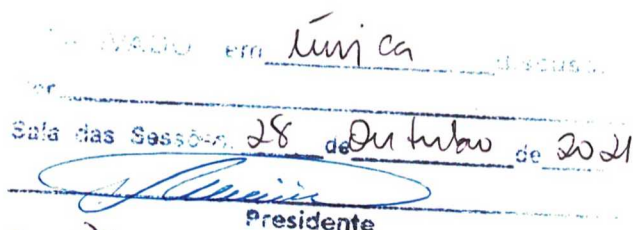 em única
Sala das Sessões, 28 de Outubro de 2021
Presidente